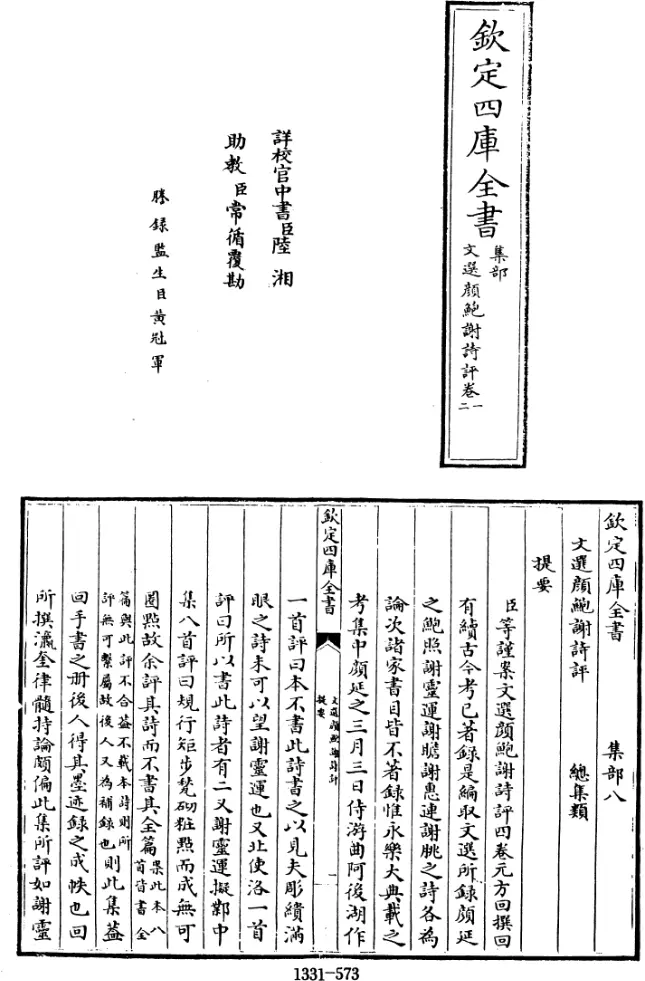 欽定四庫全書
集部
文選顏鮑謝詩評卷一
二
詳校官中書臣陸湘
助教臣常循覆勘
謄錄監生臣黃冠軍
欽定四庫全書 集部八
文選顏鮑謝詩評 總集類
提要
臣等謹案文選顏鮑謝詩評四卷元方回撰回
有續古今考已著錄是編取文選所錄顏延
之鮑照謝靈運謝瞻謝惠連謝朓之詩各為
論次諸家書目皆不著錄惟永樂大典載之
考集中顏延之三月三日侍游曲阿後湖作
欽定四庫全書
文選顏鮑謝詩評
提要
一
一首評曰本不書此詩書之以見夫彫繢滿
眼之詩未可以望謝靈運也又北使洛一首
評曰所以書此詩者有二又謝靈運擬鄴中
集八首評曰規行矩步甃砌粧點而成無可
圈點故余評其詩而不書其全篇案此本八
首皆書全
篇與此評不合蓋不載本詩則所
評無可繫屬故後人又為補錄也則此集蓋
回手書之册後人得其墨迹錄之成帙也回
所撰瀛奎律髓持論頗偏此集所評如謝靈
1331-573